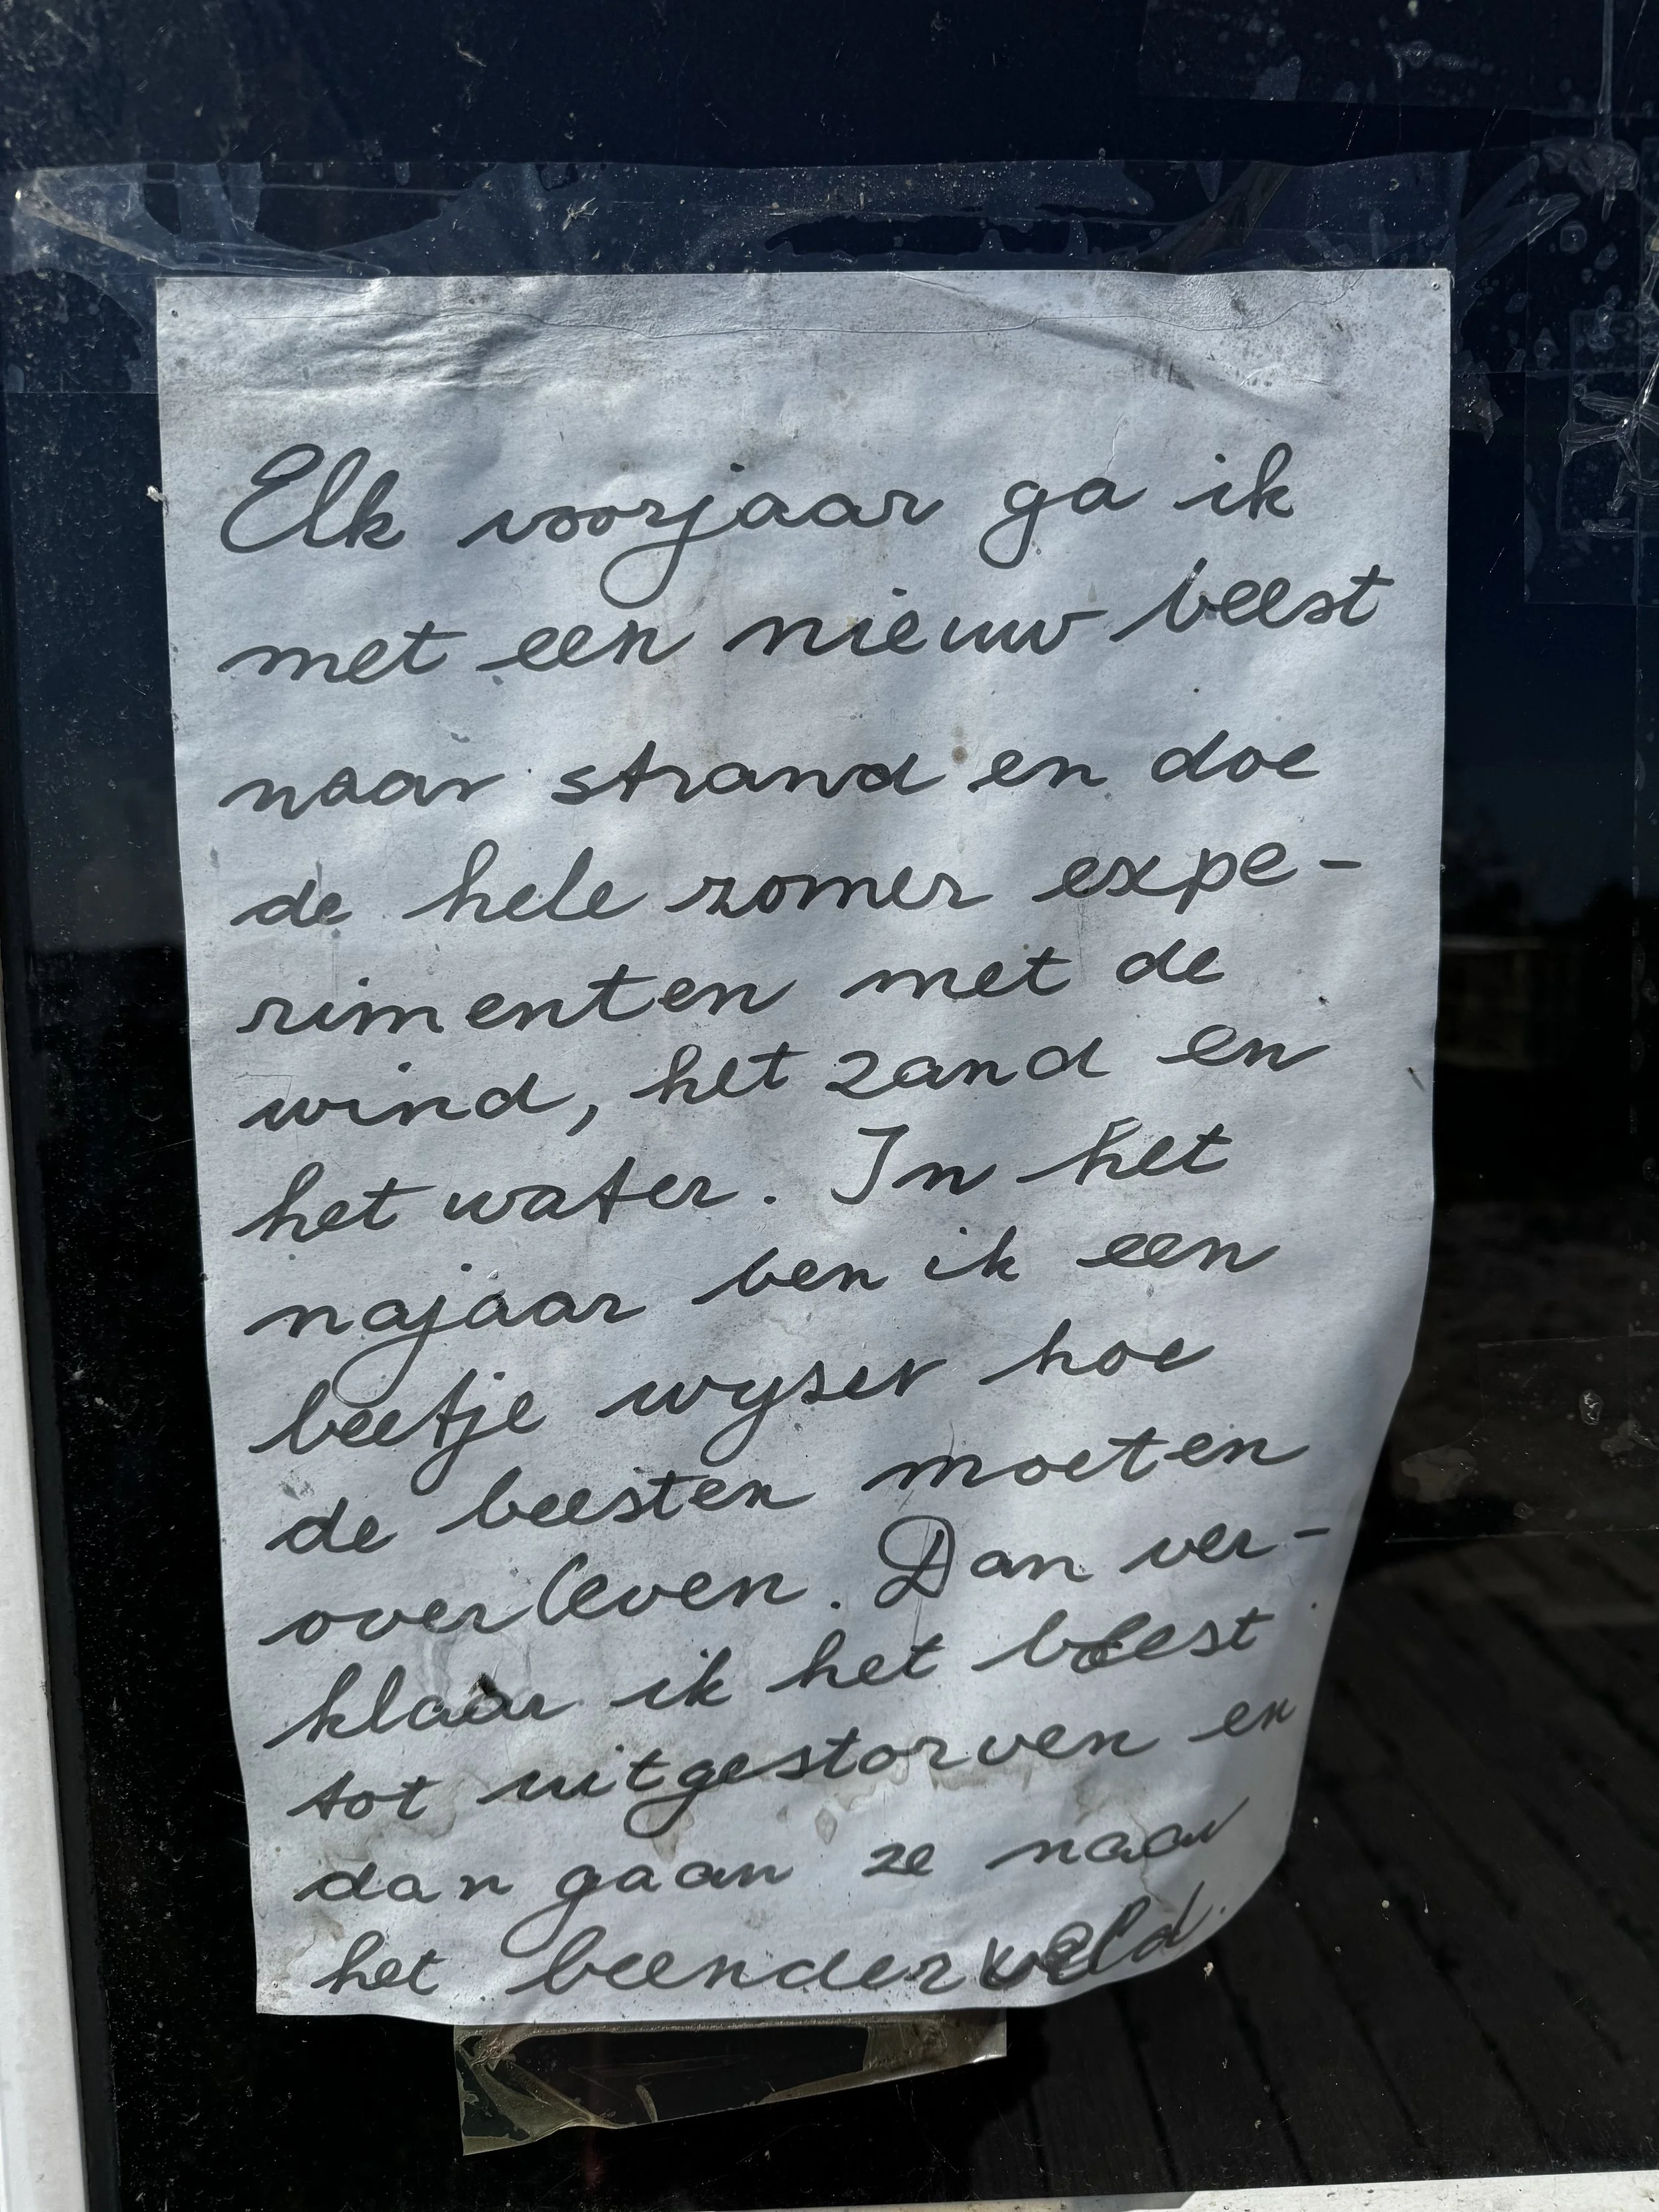 Elk voorjaar ga ik
met een nieuw beest
naar strand en doe
de hele zomer expe-
rimenten met de
wind, het zand en
het water. In het
najaar ben ik een
beetje wyser hoe
de beesten moeten
overleven. Dan ver-
klaar ik het beest
tot uitgestorven en
dan gaan ze naar
het beenderveld.